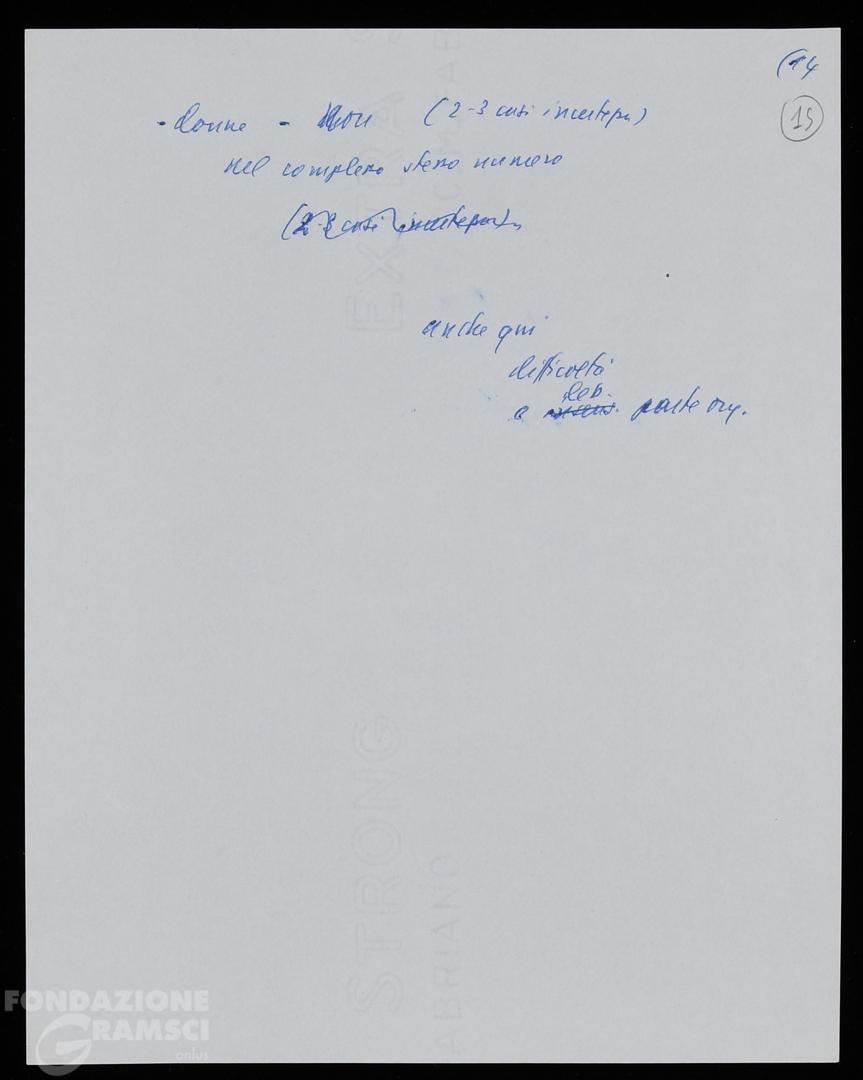 (14
15
- donne - Non (2-3 casi incertezza)
nel complesso stesso numero
(2-3 casi incertezza)
anche qui
difficoltà
deb.
e parte org.
EXTRA S
STRONG
FABRIANO
FONDAZIONE
GRAMSCI
onlus